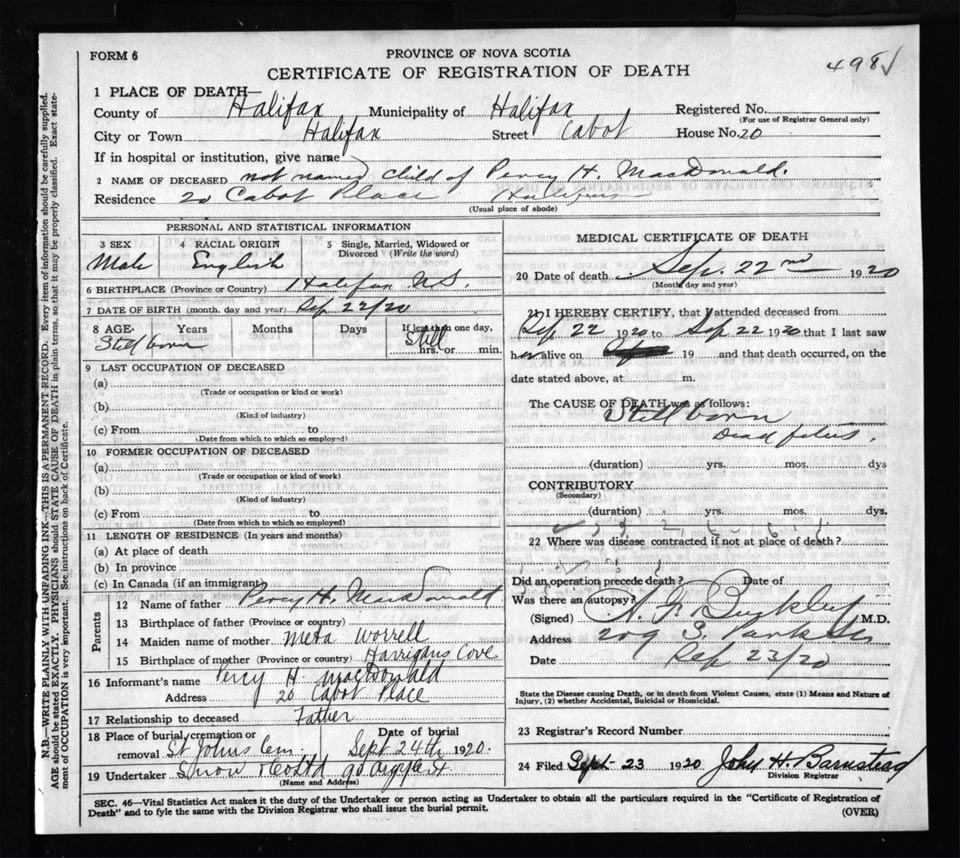 FORM 6
PROVINCE OF NOVA SCOTIA
498√
CERTIFICATE OF REGISTRATION OF DEATH
1 PLACE OF DEATH—
County of Halifax Municipality of Halifax Registered No.
(For use of Registrar General only)
City or Town Halifax Street Cabot House No. 20
If in hospital or institution, give name
2 NAME OF DECEASED not named child of Percy H. MacDonald.
Residence 20 Cabot Place Halifax
(Usual place of abode)
PERSONAL AND STATISTICAL INFORMATION
3 SEX 4 RACIAL ORIGIN 5 Single, Married, Widowed or
Divorced (Write the word)
Male English
6 BIRTHPLACE (Province or Country) Halifax N.S.
7 DATE OF BIRTH (month, day and year) Sep 22/20
8 AGE. Years Months Days If less than one day,
Still born Still
hrs. or min.
9 LAST OCCUPATION OF DECEASED
(a)
(Trade or occupation or kind or work)
(b)
(Kind of industry)
(c) From to
(Date from which to which so employed)
10 FORMER OCCUPATION OF DECEASED
(a)
(Trade or occupation or kind of work)
(b)
(Kind of industry)
(c) From to
(Date from which to which so employed)
11 LENGTH OF RESIDENCE (In years and months)
(a) At place of death
(b) In province
(c) In Canada (if an immigrant)
Parents
12 Name of father Percy H. MacDonald
13 Birthplace of father (Province or country)
14 Maiden name of mother Meta Worrell
15 Birthplace of mother (Province or country) Harrigans Cove
16 Informant's name Percy H MacDonald
Address 20 Cabot Place
17 Relationship to deceased Father
18 Place of burial, cremation or Date of burial
removal St Johns Cem Sept 24th 1920.
19 Undertaker Snow & Co Ltd 90 Argyle St
(Name and Address)
MEDICAL CERTIFICATE OF DEATH
20 Date of death Sep. 22nd 1920
(Month, day and year)
21 I HEREBY CERTIFY, that I attended deceased from
Sep 22 1920 to Sep 22 1920 that I last saw
h alive on 19 and that death occurred, on the
date stated above, at m.
The CAUSE OF DEATH was as follows:
Still born
Dead fetus.
(duration) yrs. mos. dys
CONTRIBUTORY
(Secondary)
(duration) yrs. mos. dys.
22 Where was disease contracted if not at place of death?
Did an operation precede death? Date of
Was there an autopsy?
(Signed) Buckley M.D.
Address 209 S. Park St
Date Sep 23/20
State the Disease causing Death, or in death from Violent Causes, state (1) Means and Nature of
Injury, (2) whether Accidental, Suicidal or Homicidal.
23 Registrar's Record Number
24 Filed Sept 23 1920 John H. Barnstead
Division Registrar
SEC. 46—Vital Statistics Act makes it the duty of the Undertaker or person acting as Undertaker to obtain all the particulars required in the "Certificate of Registration of
Death" and to fyle the same with the Division Registrar who shall issue the burial permit.
(OVER)
N.B.—WRITE PLAINLY WITH UNFADING INK—THIS IS A PERMANENT RECORD. Every item of information should be carefully supplied.
AGE should be stated EXACTLY. PHYSICIANS should STATE CAUSE OF DEATH in plain terms, so that it may be properly classified. Exact state-
ment of OCCUPATION is very important. See instructions on back of Certificate.